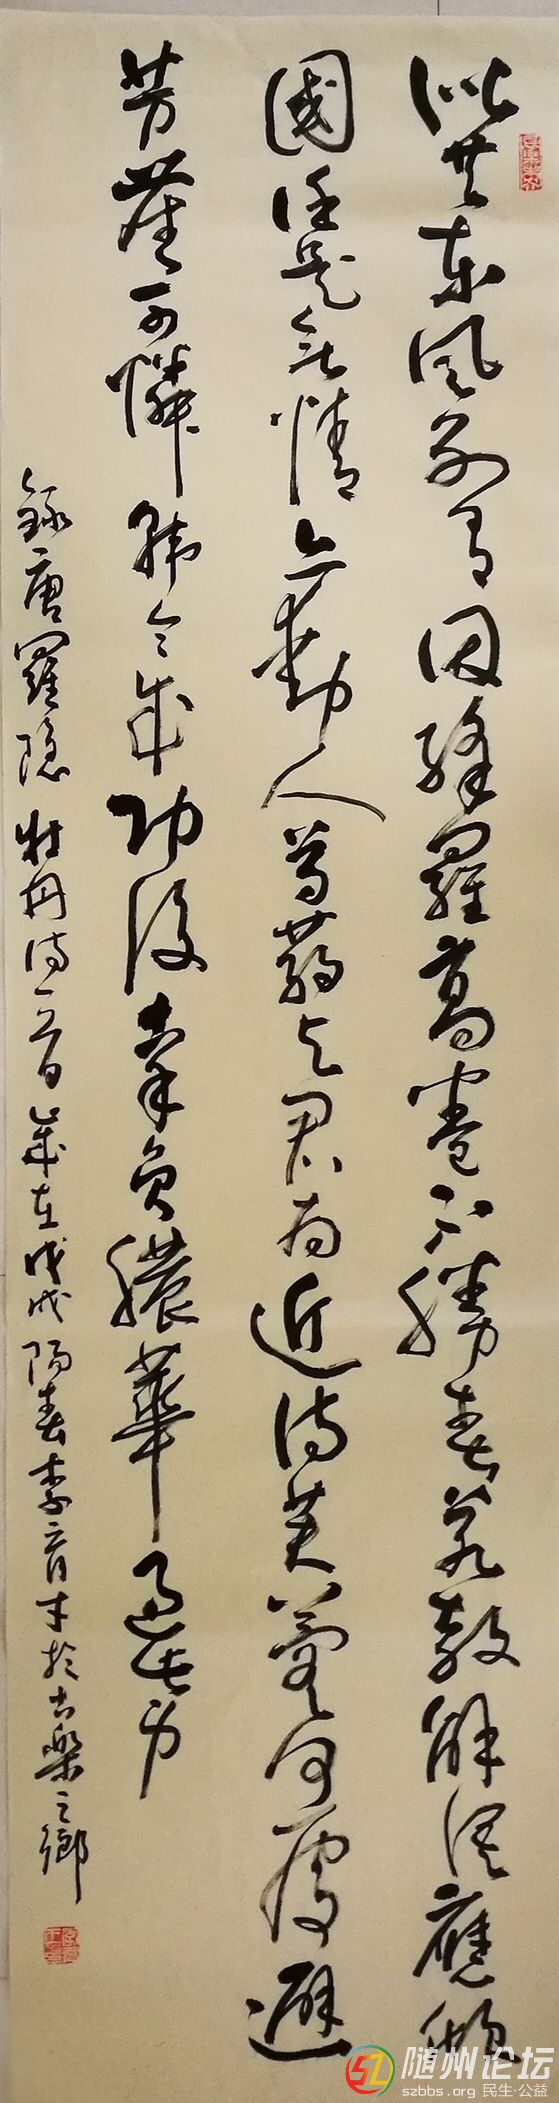 似共東風別有因絳羅高卷不勝春若教解語應傾
國任是無情亦動人芍藥與君為近侍芙蓉何處避
芳塵可憐韓令成功後辜負穠華過此身
錄唐羅隱牡丹詩一首歲在戊戌陽春李育才於古樂之鄉
随州论坛
szbbs.org 民生·公益